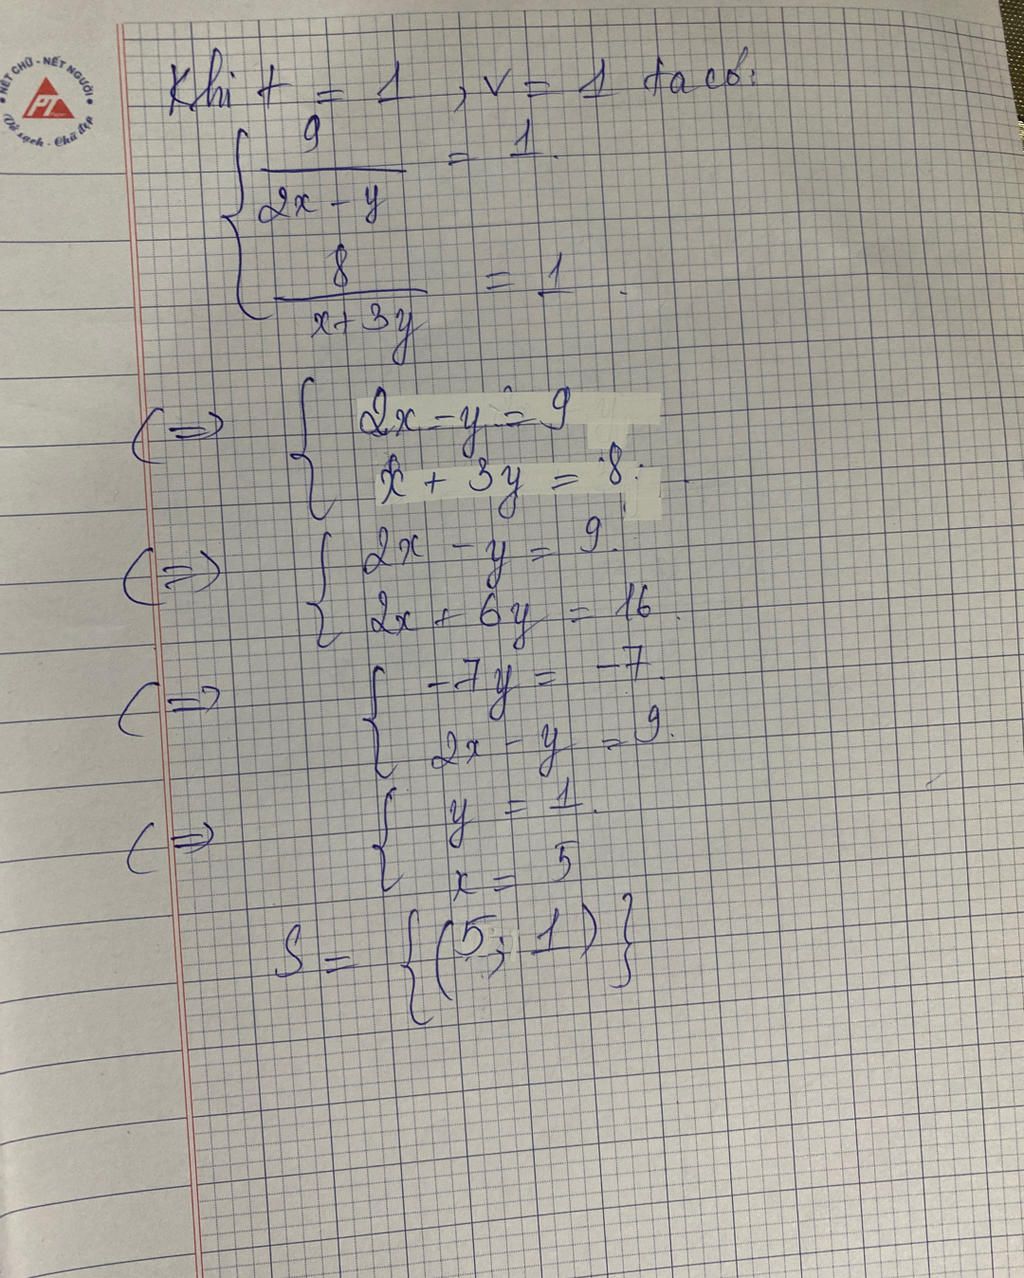 NÉT CHỮ - NẾT NGƯỜI
PT
Vở sạch - Chữ đẹp
Khi t = 1 , v = 1 ta có:
{ 9 / (2x - y) = 1.
8 / (x + 3y) = 1.
(=> { 2x - y = 9
x + 3y = 8.
(=> { 2x - y = 9.
2x + 6y = 16.
(=> { -7y = -7.
2x - y = 9.
(=> { y = 1.
x = 5
S = {(5; 1)}